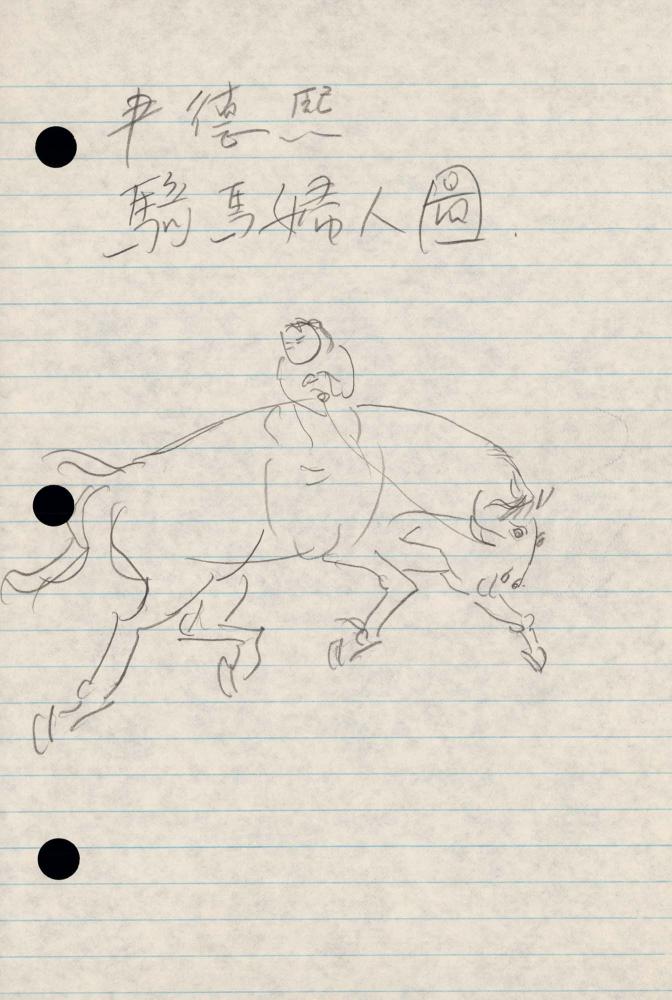 韋德熙
騎馬婦人圖.